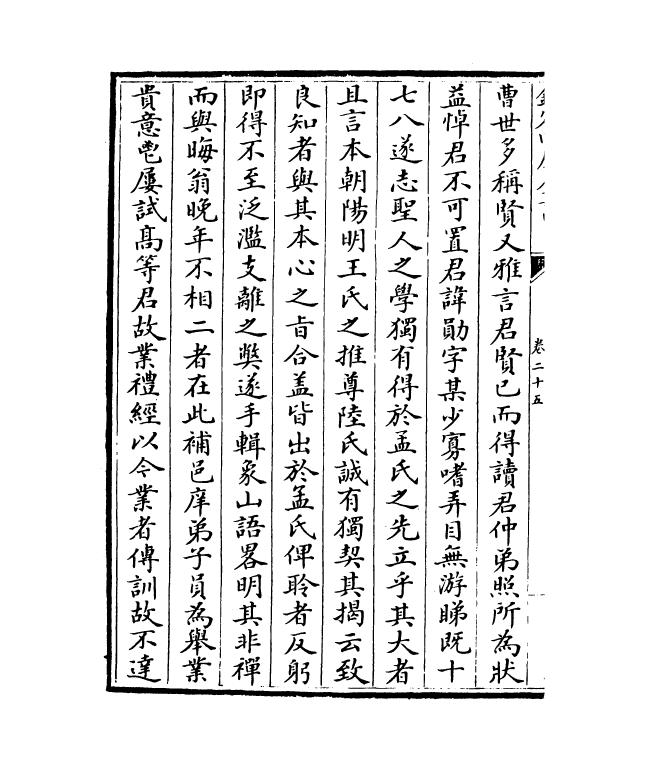 卷二十五
曹世多稱賢又雅言君賢已而得讀君仲弟照所為狀
益悼君不可置君諱勛字某少寡嗜弄目無游睇既十
七八遂志聖人之學獨有得於孟氏之先立乎其大者
且言本朝陽明王氏之推尊陸氏誠有獨契其揭云致
良知者與其本心之旨合盖皆出於孟氏俾聆者反躬
即得不至泛濫支離之獘遂手輯象山語畧明其非禪
而與晦翁晚年不相二者在此補邑庠弟子員為舉業
貴意鬯屢試髙等君故業禮經以今業者傅訓故不達